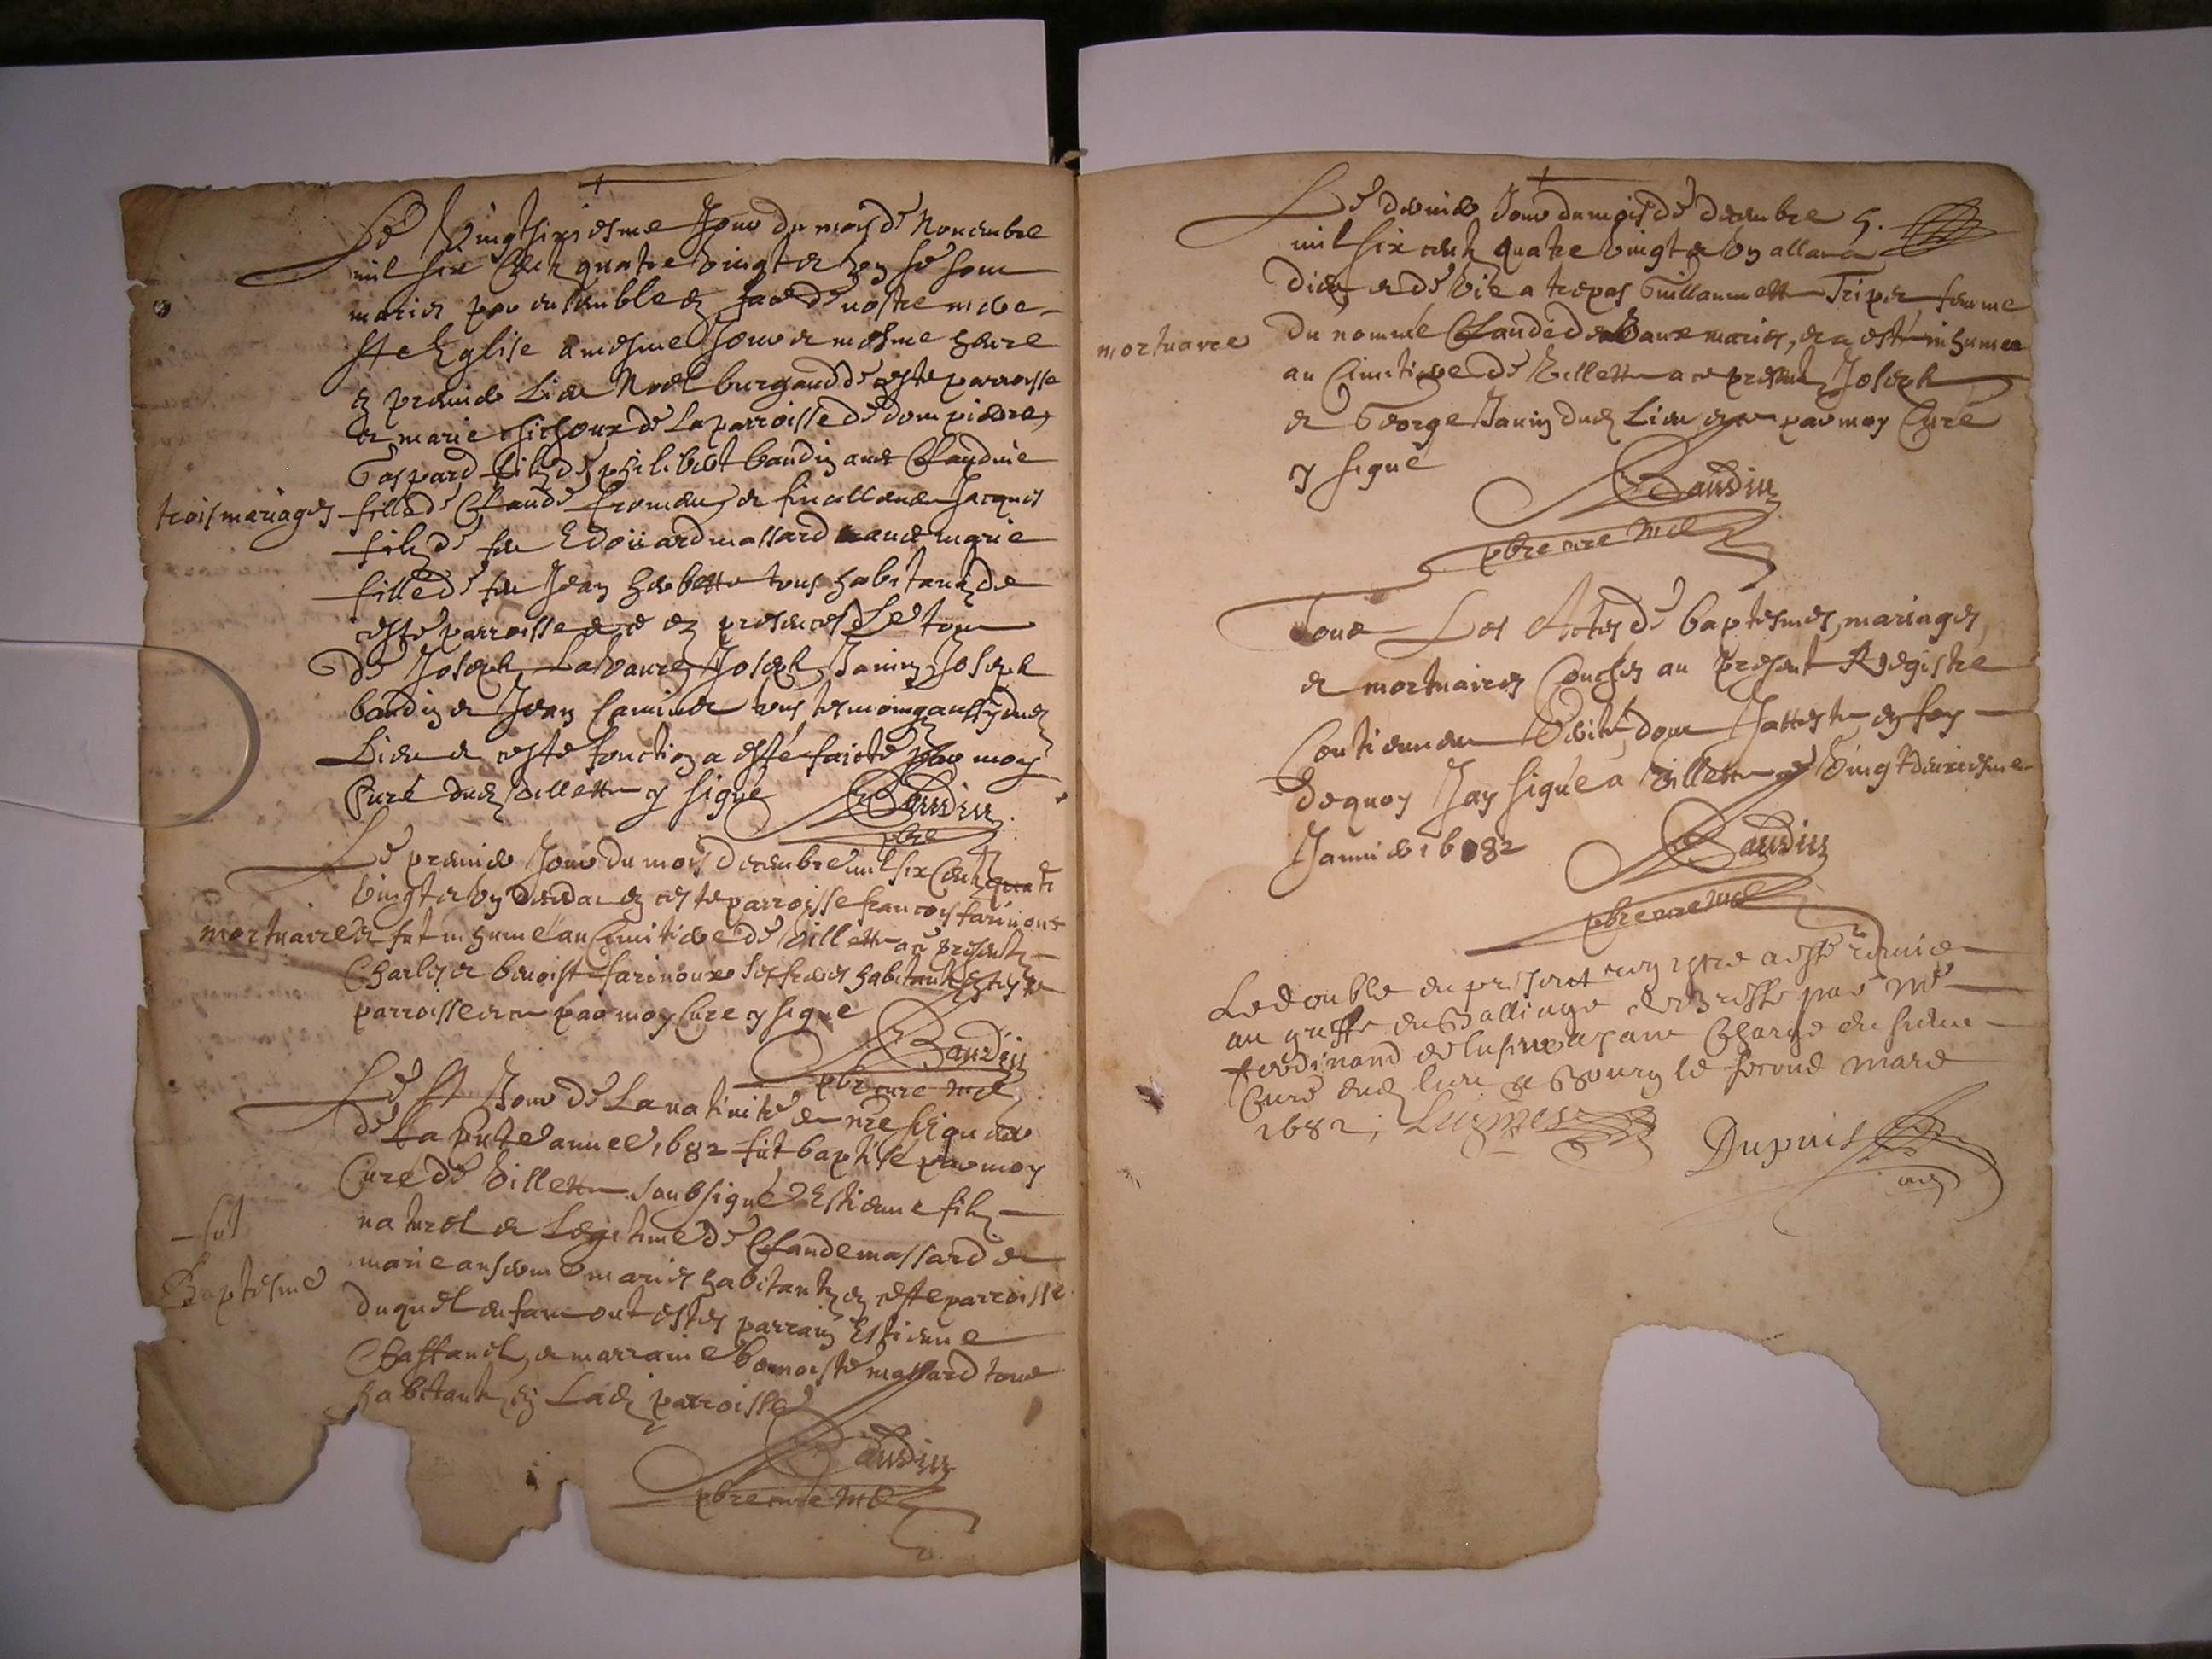 Le Vingtsixiesme Jour du mois de Novembre
mil six Cent quatre vingt et un se sont
mariez par ensemble en face de nostre mere
Ste Eglise a mesme Jour et mesme heure
en premier Lieu Noel burgaud de ceste parroisse
et marie de La parroisse de dompierre,
Gaspard filz de philibert baudin avec Claudine
trois mariages
fille de Claude froment et finallement Jacques
filz de feu Edoüard massard avec marie
fille de feu Jean herbette tous habitantz de
ceste parroisse et ce en presences Le tout
de Joseph Joseph Janin Joseph
baudin et Jean tous tesmoingz aussy dud
Lieu et ceste fonction a esté faicte par moy
Curé dud villette cy signé Baudin
pbre
Le premier Jour du mois decembre mil six Cent quatre
vingt et un deceda en ceste parroisse francois farinoux
mortuaire
et fut inhumé au Cimitiere de Villette ace presentz
Charles et benoist farinoux ses freres habitantz en ceste
parroisse et ce par moy Cure cy signé
Baudin
pbre cure
Le St Jour de La nativité de nre seigneur
de La pnte annee 1682 fut baptisé par moy
Cure de Villette soubsigné Estienne filz
fut
Baptesme
naturel et Legitime de Claude massard et
marie mariez habitantz en ceste parroisse
duquel enfant ont estez parrain Estienne
et marraine benoiste massard tous
habitantz en Lad parroisse
Baudin
pbre cure
Le dernier Jour du mois de decembre 5.
mil six centz quatre vingt et un alla a
Dieu et de vie a trepas Guillaumette Tripier femme
mortuaire
du nommé Claude mariez, et a esté inhumee
au Cimitiere de Villette a ce presentz Joseph
et George Janin dud Lieu et ce par moy Curé
cy signé
Baudin
pbre cure
Tous Les Actes de baptesmes, mariages,
et mortuaires Couchez au present Registre
Contiennent Verité dont Jatteste en foy
dequoy Jay signé a Villette ce Vingtdeuxiesme
Janvier 1682
Baudin
pbre cure
Le double du present registre a esté remis
au greffe du Balliage de Bresse par Me
ferdinand ayant Charge du sieur
Curé dud lieu a Bourg le second mars
1682,
Dupuis